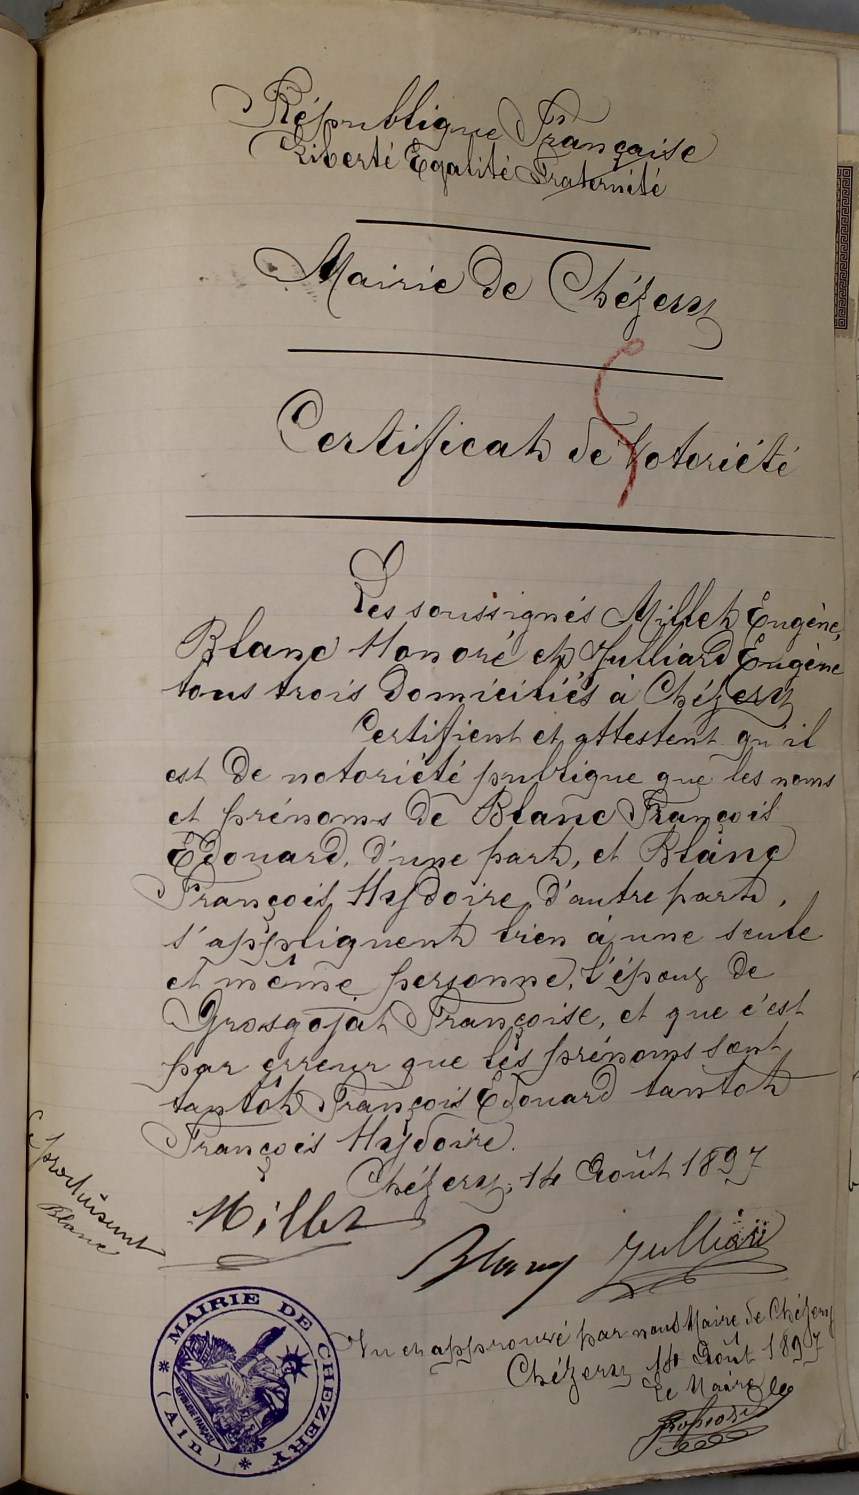 République Française
Liberté Egalité Fraternité
Mairie de Chézery
Certificat de Notoriété
Les soussignés Millet Eugène,
Blanc Honoré et Julliard Eugène
tous trois domiciliés à Chézery
Certifient et attestent qu'il
est de notoriété publique que les noms
et prénoms de Blanc François
Edouard, d'une part, et Blanc
François Hydoire, d'autre part,
s'appliquent bien à une seule
et même personne, l'époux de
Grosgojat Françoise, et que c'est
par erreur que les prénoms sont
tantôt François Edouard tantot
François Hydoire.
Chézery, 14 Août 1897
Millet
Blanc Julliard
produisant
Blanc
Vu et approuvé par nous Maire de Chézery
Chézery 14 Août 1897
Le Maire
MAIRIE DE CHEZERY
(Ain)
REPUBLIQUE FRANÇAISE